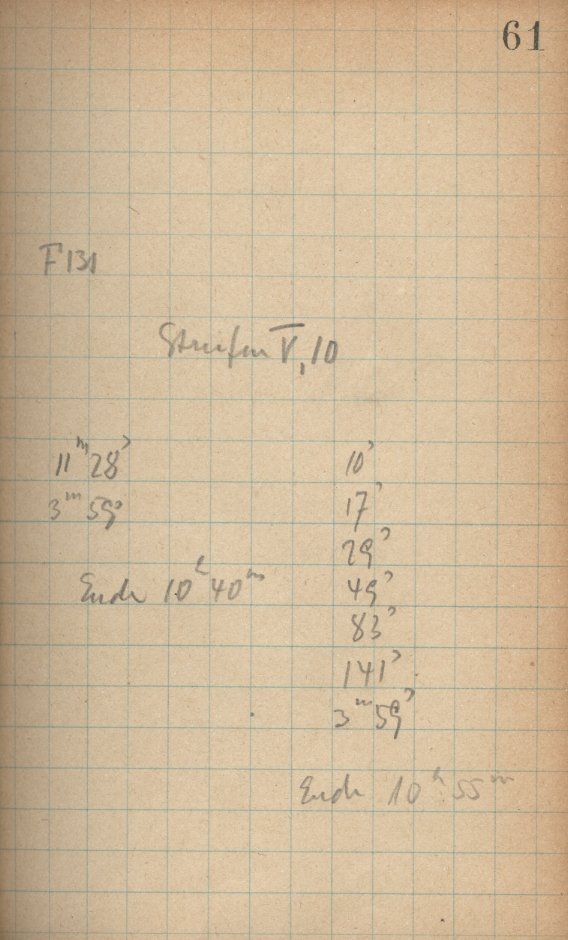 61
F 131
Streifen V, 10
11ᵐ 28ˢ
3ᵐ 59ˢ
Ende 10ʰ 40ᵐ
10ˢ
17ˢ
29ˢ
49ˢ
83ˢ
141ˢ
3ᵐ 59ˢ
Ende 10ʰ 55ᵐ